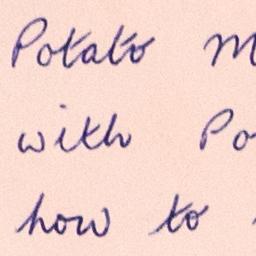 Potato M
with Po
how to